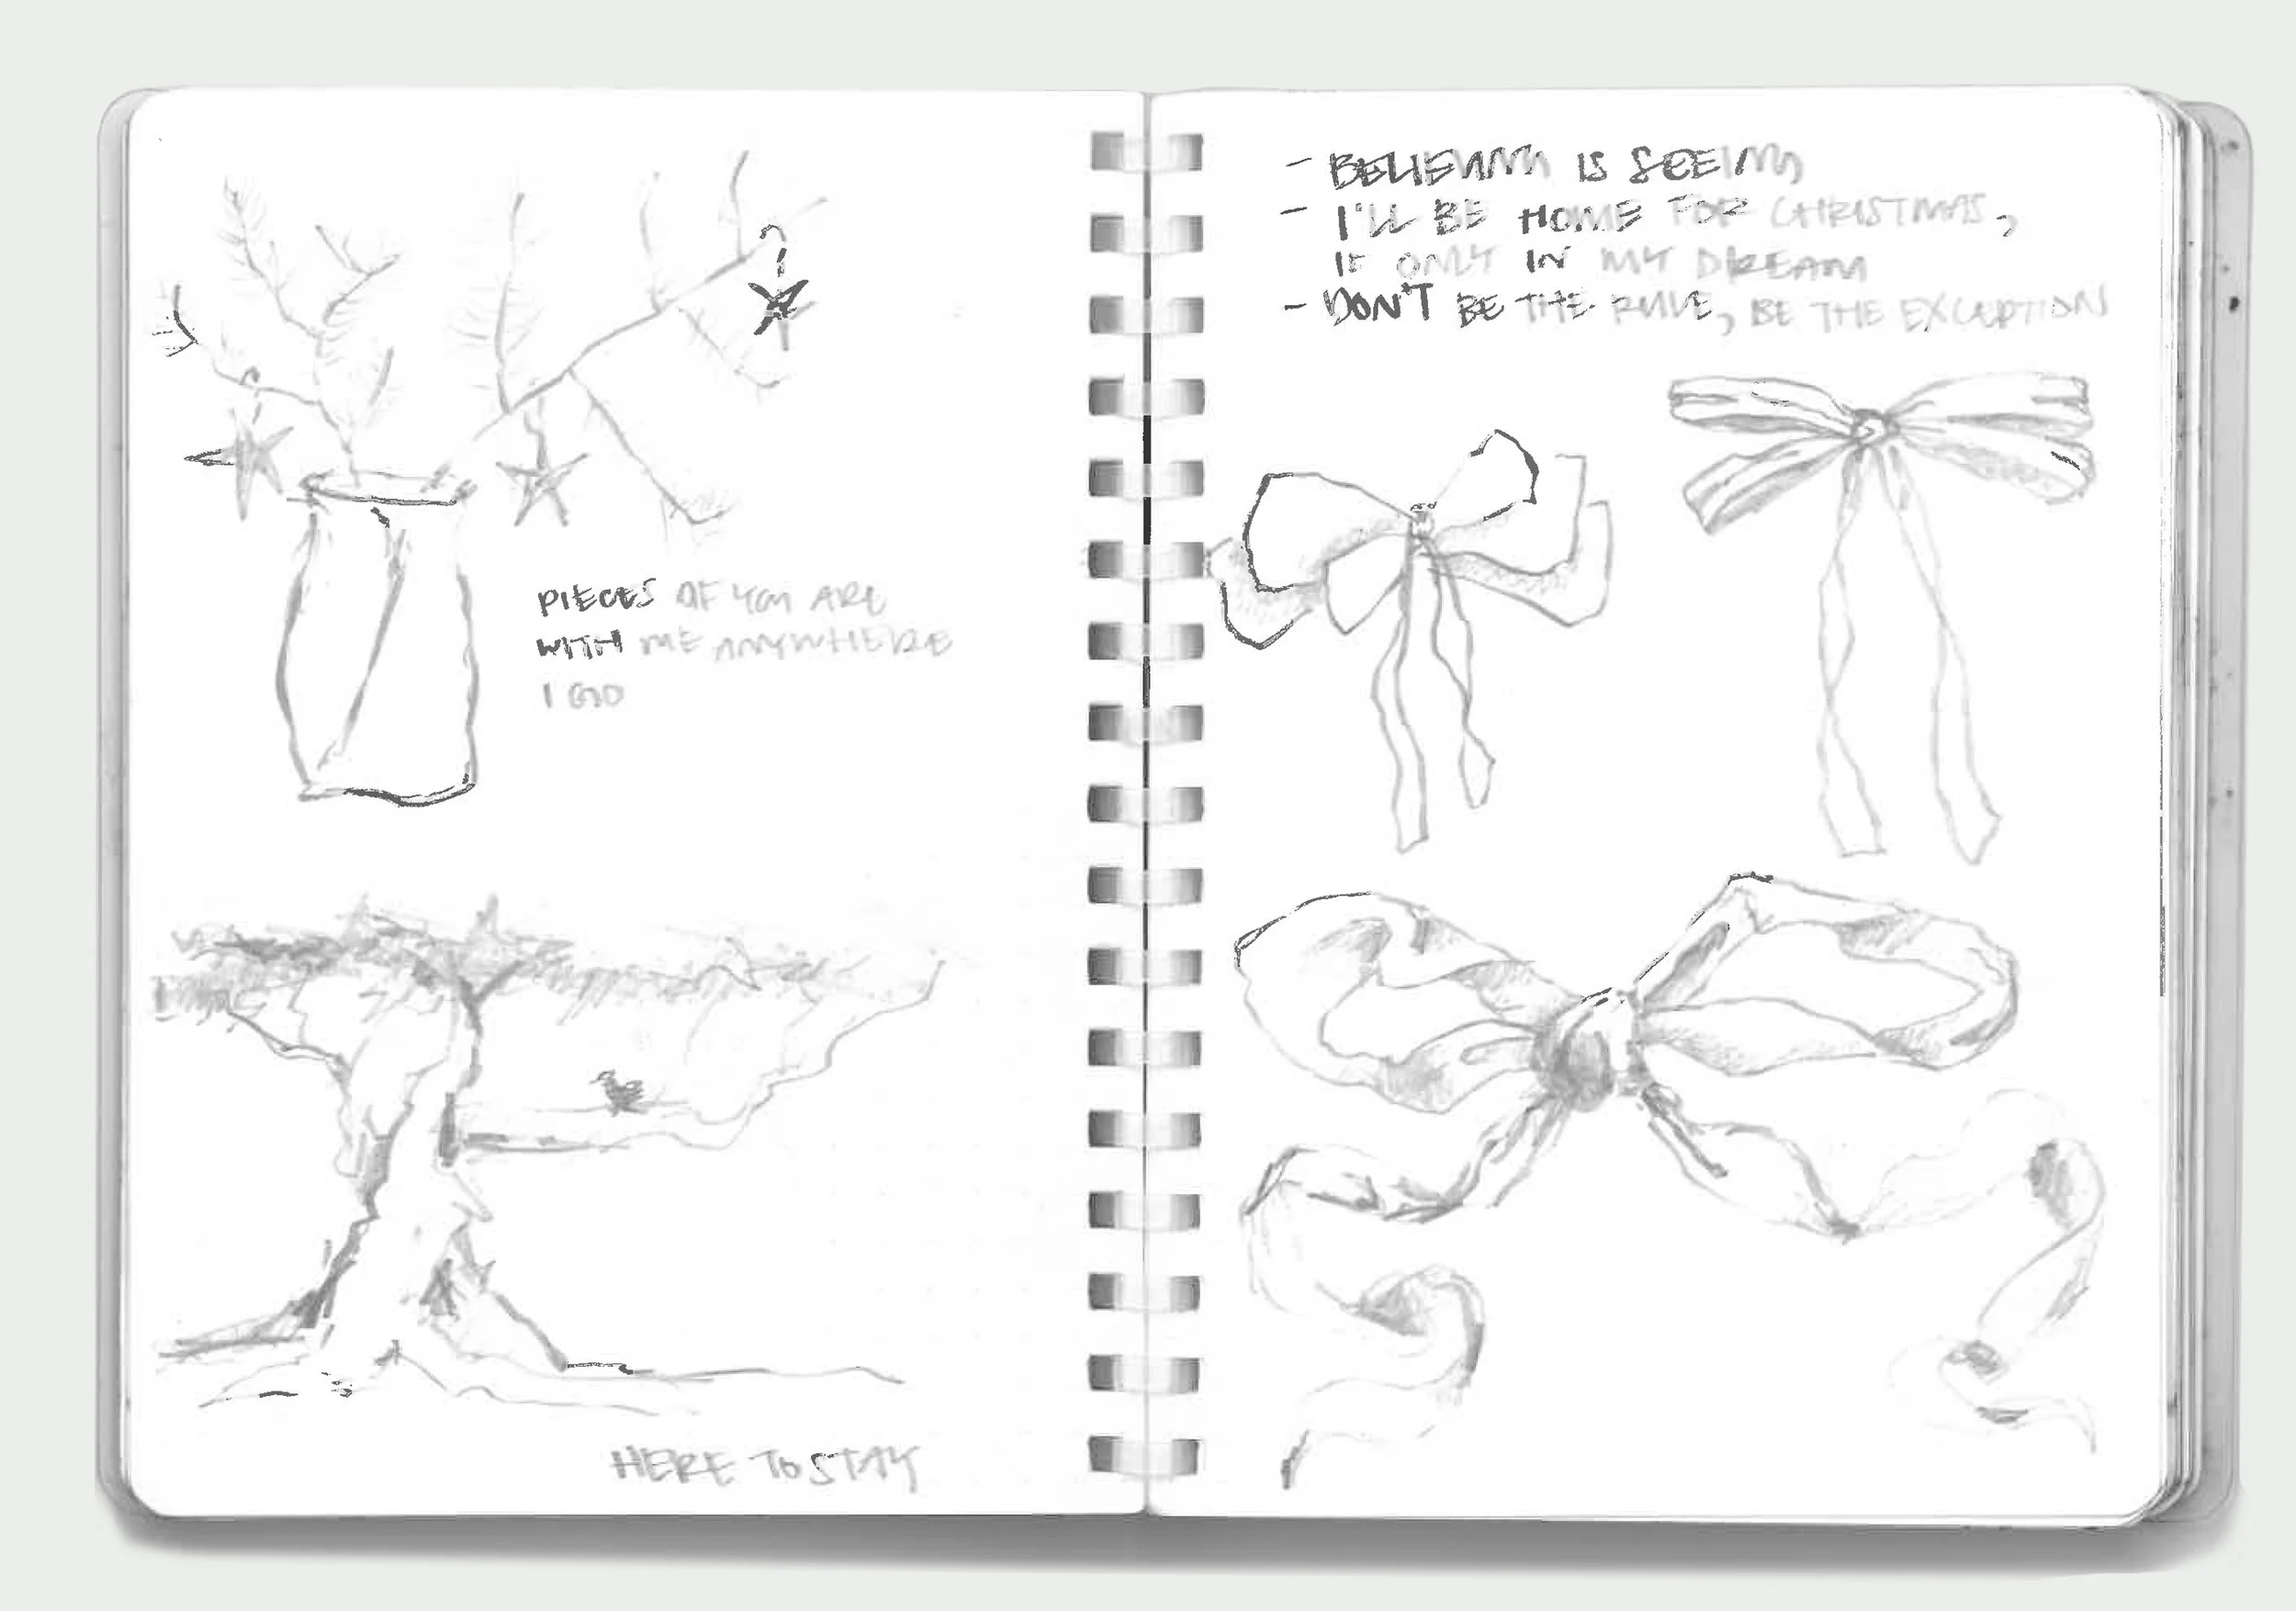 PIECES OF YOU ARE
WITH ME ANYWHERE
I GO
HERE TO STAY
- BELIEVING IS SEEING
- I'LL BE HOME FOR CHRISTMAS,
IF ONLY IN MY DREAM
- DON'T BE THE RULE, BE THE EXCEPTION